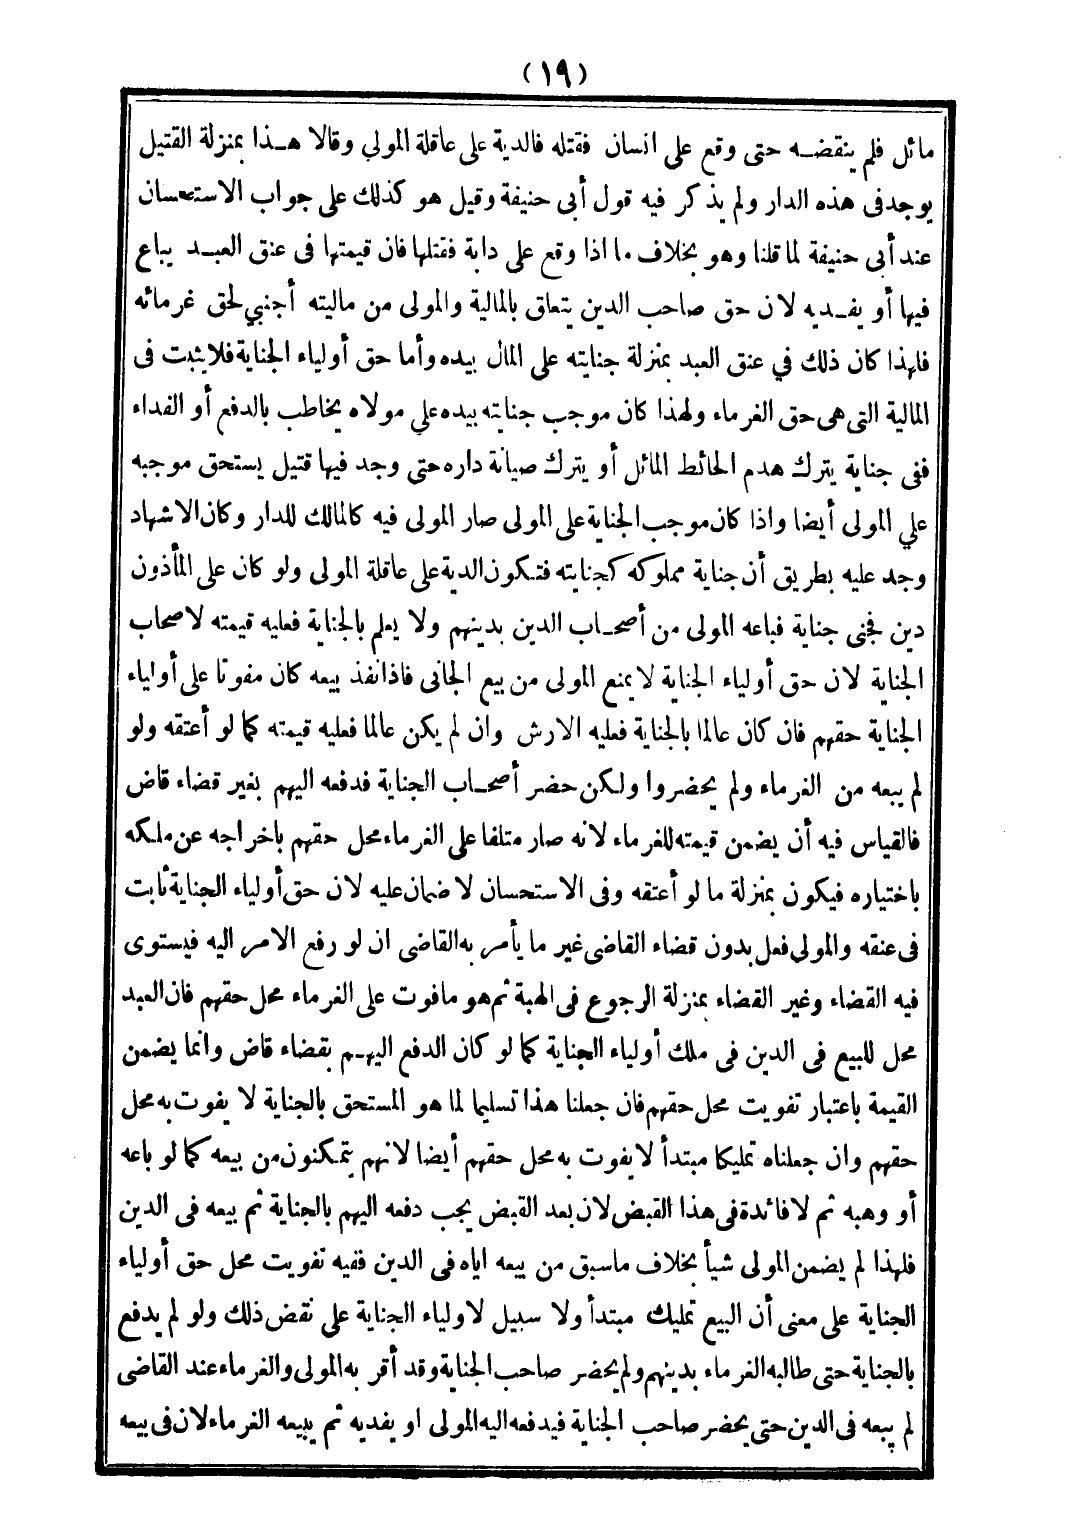 (١٩)
مائل فلم ينقضه حتى وقع على انسان فقتله فالدية على عاقلة المولي وقالا هذا بمنزلة القتيل
يوجد فى هذه الدار ولم يذكر فيه قول أبى حنيفة وقيل هو كذلك على جواب الاستحسان
عند أبى حنيفة لما قلنا وهو بخلاف ما اذا وقع على دابة فقتلها فان قيمتها فى عنق العبد يباع
فيها أو يفديه لان حق صاحب الدين يتعلق بالمالية والمولى من ماليته أجنبي لحق غرمائه
فلهذا كان ذلك في عنق العبد بمنزلة جنايته على المال بيده وأما حق أولياء الجناية فلا يثبت فى
المالية التى هى حق الغرماء ولهذا كان موجب جنايته بيده علي مولاه يخاطب بالدفع أو الفداء
ففى جناية يترك هدم الحائط المائل أو يترك صيانة داره حتى وجد فيها قتيل يستحق موجبه
علي المولى أيضا واذا كان موجب الجناية على المولى صار المولى فيه كالمالك للدار وكان الاشهاد
وجد عليه بطريق أن جناية مملوكه كجنايته فتكون الدية على عاقلة المولى ولو كان على المأذون
دين فجنى جناية فباعه المولى من أصحاب الدين بدينهم ولا يعلم بالجناية فعليه قيمته لاصحاب
الجناية لان حق أولياء الجناية لا يمنع المولى من بيع الجانى فاذا نفذ بيعه كان مفوتا على أولياء
الجناية حقهم فان كان عالما بالجناية فعليه الارش وان لم يكن عالما فعليه قيمته كما لو أعتقه ولو
لم يبعه من الغرماء ولم يحضروا ولكن حضر أصحاب الجناية فدفعه اليهم بغير قضاء قاض
فالقياس فيه أن يضمن قيمته للغرماء لانه صار متلفا على الغرماء محل حقهم باخراجه عن ملكه
باختياره فيكون بمنزلة ما لو أعتقه وفى الاستحسان لا ضمان عليه لان حق أولياء الجناية ثابت
فى عنقه والمولى فعل بدون قضاء القاضى غير ما يأمر به القاضى ان لو رفع الامر اليه فيستوى
فيه القضاء وغير القضاء بمنزلة الرجوع فى الهبة ثم هو ما فوت على الغرماء محل حقهم فان العبد
محل للبيع فى الدين فى ملك أولياء الجناية كما لو كان الدفع اليهم بقضاء قاض وانما يضمن
القيمة باعتبار تفويت محل حقهم فان جعلنا هذا تسليما لما هو المستحق بالجناية لا يفوت به محل
حقهم وان جعلناه تمليكا مبتدأ لا يفوت به محل حقهم أيضا لانهم يتمكنون من بيعه كما لو باعه
أو وهبه ثم لا فائدة فى هذا القبض لان بعد القبض يجب دفعه اليهم بالجناية ثم بيعه فى الدين
فلهذا لم يضمن المولى شيأ بخلاف ما سبق من بيعه اياه فى الدين ففيه تفويت محل حق أولياء
الجناية على معنى أن البيع تمليك مبتدأ ولا سبيل لاولياء الجناية على نقض ذلك ولو لم يدفع
بالجناية حتى طالبه الغرماء بدينهم ولم يحضر صاحب الجناية وقد أقر به المولى والغرماء عند القاضى
لم يبعه فى الدين حتى يحضر صاحب الجناية فيدفعه اليه المولى او يفديه ثم يبيعه الغرماء لان فى بيعه